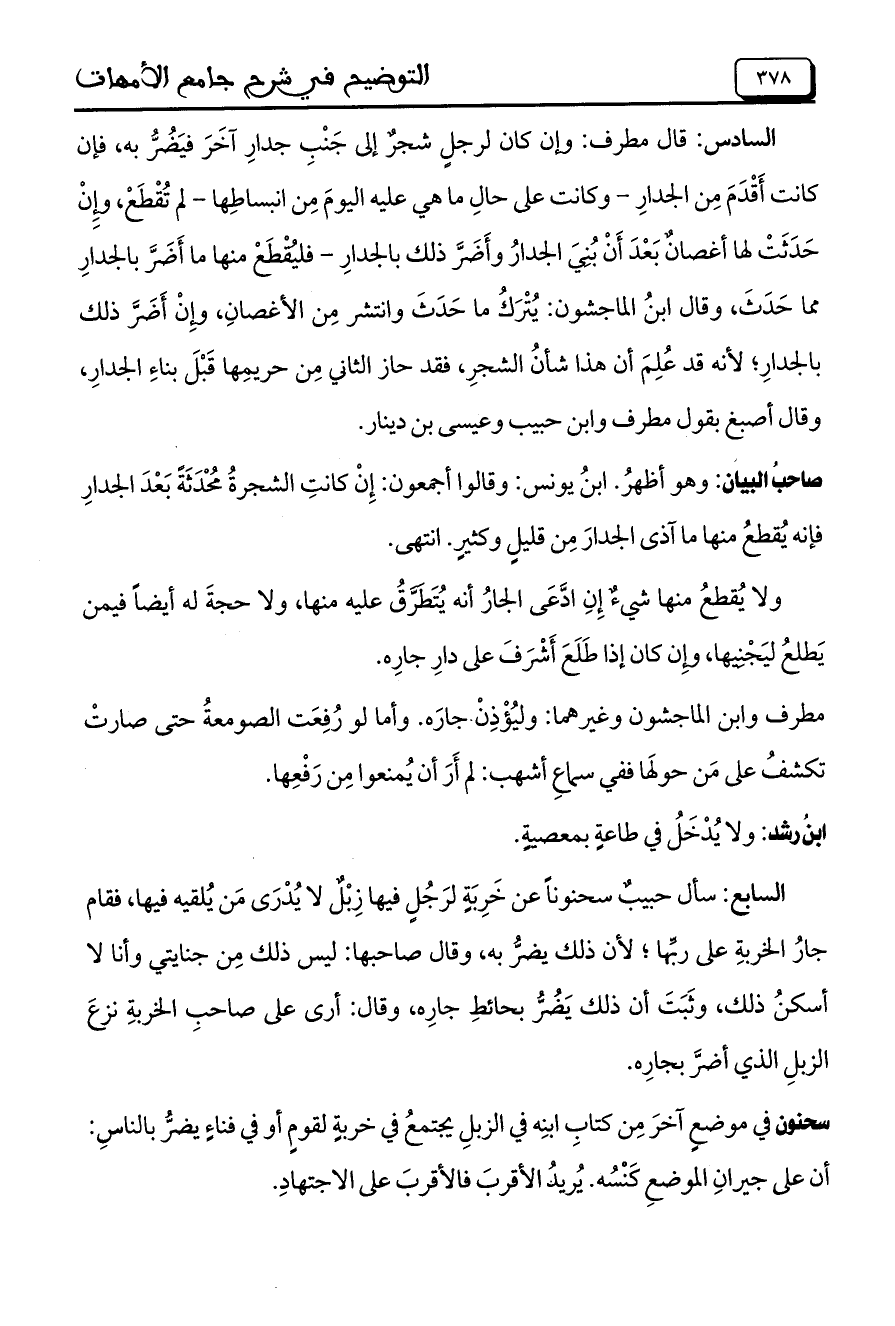 ٣٧٨
التوضيح في شرح جامع الأمهات
السادس: قال مطرف: وإن كان لرجلٍ شجرٌ إلى جَنْبِ جدارِ آخَرَ فيَضُرُّ به، فإن
كانت أَقْدَمَ مِن الجدارِ – وكانت على حالِ ما هي عليه اليومَ مِن انبساطِها – لم تُقْطَعْ، وإِنْ
حَدَثَتْ لها أغصانٌ بَعْدَ أَنْ بُنِيَ الجدارُ وأَضَرَّ ذلك بالجدارِ – فليُقْطَعْ منها ما أَضَرَّ بالجدارِ
مما حَدَثَ، وقال ابنُ الماجشون: يُتْرَكُ ما حَدَثَ وانتشر مِن الأغصانِ، وإِنْ أَضَرَّ ذلك
بالجدارِ؛ لأنه قد عُلِمَ أن هذا شأنُ الشجرِ، فقد حاز الثاني مِن حريمِها قَبْلَ بناءِ الجدارِ،
وقال أصبغ بقول مطرف وابن حبيب وعيسى بن دينار.
صاحبُ البيان: وهو أظهرُ. ابنُ يونس: وقالوا أجمعون: إِنْ كانتِ الشجرةُ مُحْدَثَةً بَعْدَ الجدارِ
فإنه يُقطعُ منها ما آذى الجدارَ مِن قليلٍ وكثيرٍ. انتهى.
ولا يُقطعُ منها شيءٌ إِنِ ادَّعَى الجارُ أنه يُتَطَرَّقُ عليه منها، ولا حجةَ له أيضاً فيمن
يَطلعُ ليَجْنِيها، وإِن كان إذا طَلَعَ أَشْرَفَ على دارِ جارِه.
مطرف وابن الماجشون وغيرهما: وليُؤْذِنْ جارَه. وأما لو رُفِعَت الصومعةُ حتى صارتْ
تكشفُ على مَن حولَها ففي سماعِ أشهب: لم أَرَ أن يُمنعوا مِن رَفْعِها.
ابنُ رشد: ولا يُدْخَلُ في طاعةٍ بمعصيةٍ.
السابع: سأل حبيبٌ سحنوناً عن خَرِبَةٍ لرَجُلٍ فيها زِبْلٌ لا يُدْرَى مَن يُلقيه فيها، فقام
جارُ الخربةِ على ربِّها ؛ لأن ذلك يضرُّ به، وقال صاحبها: ليس ذلك مِن جنايتي وأنا لا
أسكنُ ذلك، وثَبَتَ أن ذلك يَضُرُّ بحائطِ جارِه، وقال: أرى على صاحبِ الخربةِ نزعَ
الزبلِ الذي أضرَّ بجارِه.
سحنون في موضعٍ آخرَ مِن كتابِ ابنِه في الزبلِ يجتمعُ في خربةٍ لقومٍ أو في فناءٍ يضرُّ بالناسِ:
أن على جيرانِ الموضعِ كَنْسُه. يُريدُ الأقربَ فالأقربَ على الاجتهادِ.